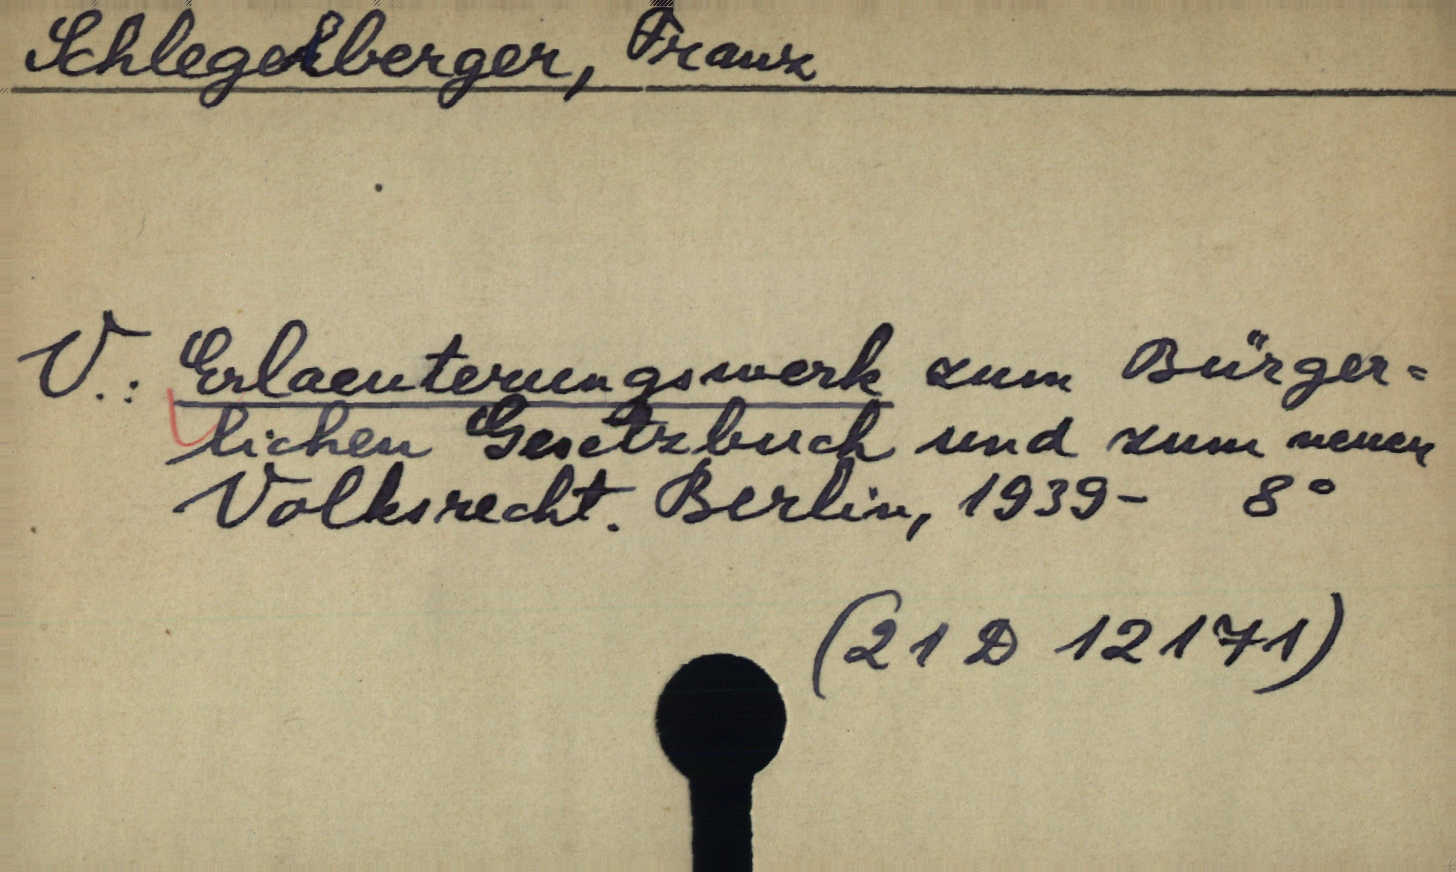 Schlegelberger, Franz
V.: Erlaeuterungswerk zum Bürger=
lichen Gesetzbuch und zum neuen
Volksrecht. Berlin, 1939- 8°
(21 D 12171)